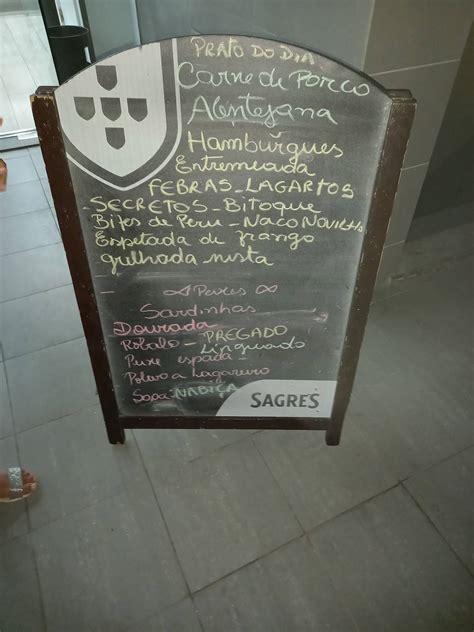 PRATO DO DIA
Carne de Porco
Alentejana
Hambúrgues
Entremeada
FEBRAS - LAGARTOS
- SECRETOS - Bitoque
Bifes de Peru - NACO NOVILHO
Espetada de frango
grelhada mista
Peixes
Sardinhas
Dourada
Robalo - PREGADO
Linguado
Peixe espada -
Polvo a Lagareiro
Sopa - NABIÇA
SAGRES